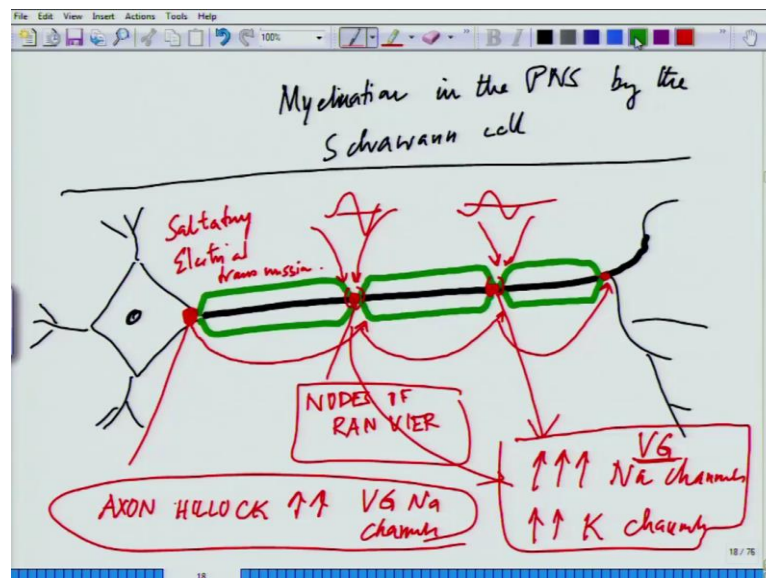 File Edit View Insert Actions Tools Help
100%
B I
Myelination in the PNS by the
Schwann cell
Saltatory
Electrical
transmission.
NODES OF
RANVIER
VG
↑↑↑ Na channels
↑↑ K channels
AXON HILLOCK ↑↑ VG Na
channels
18 / 76
18